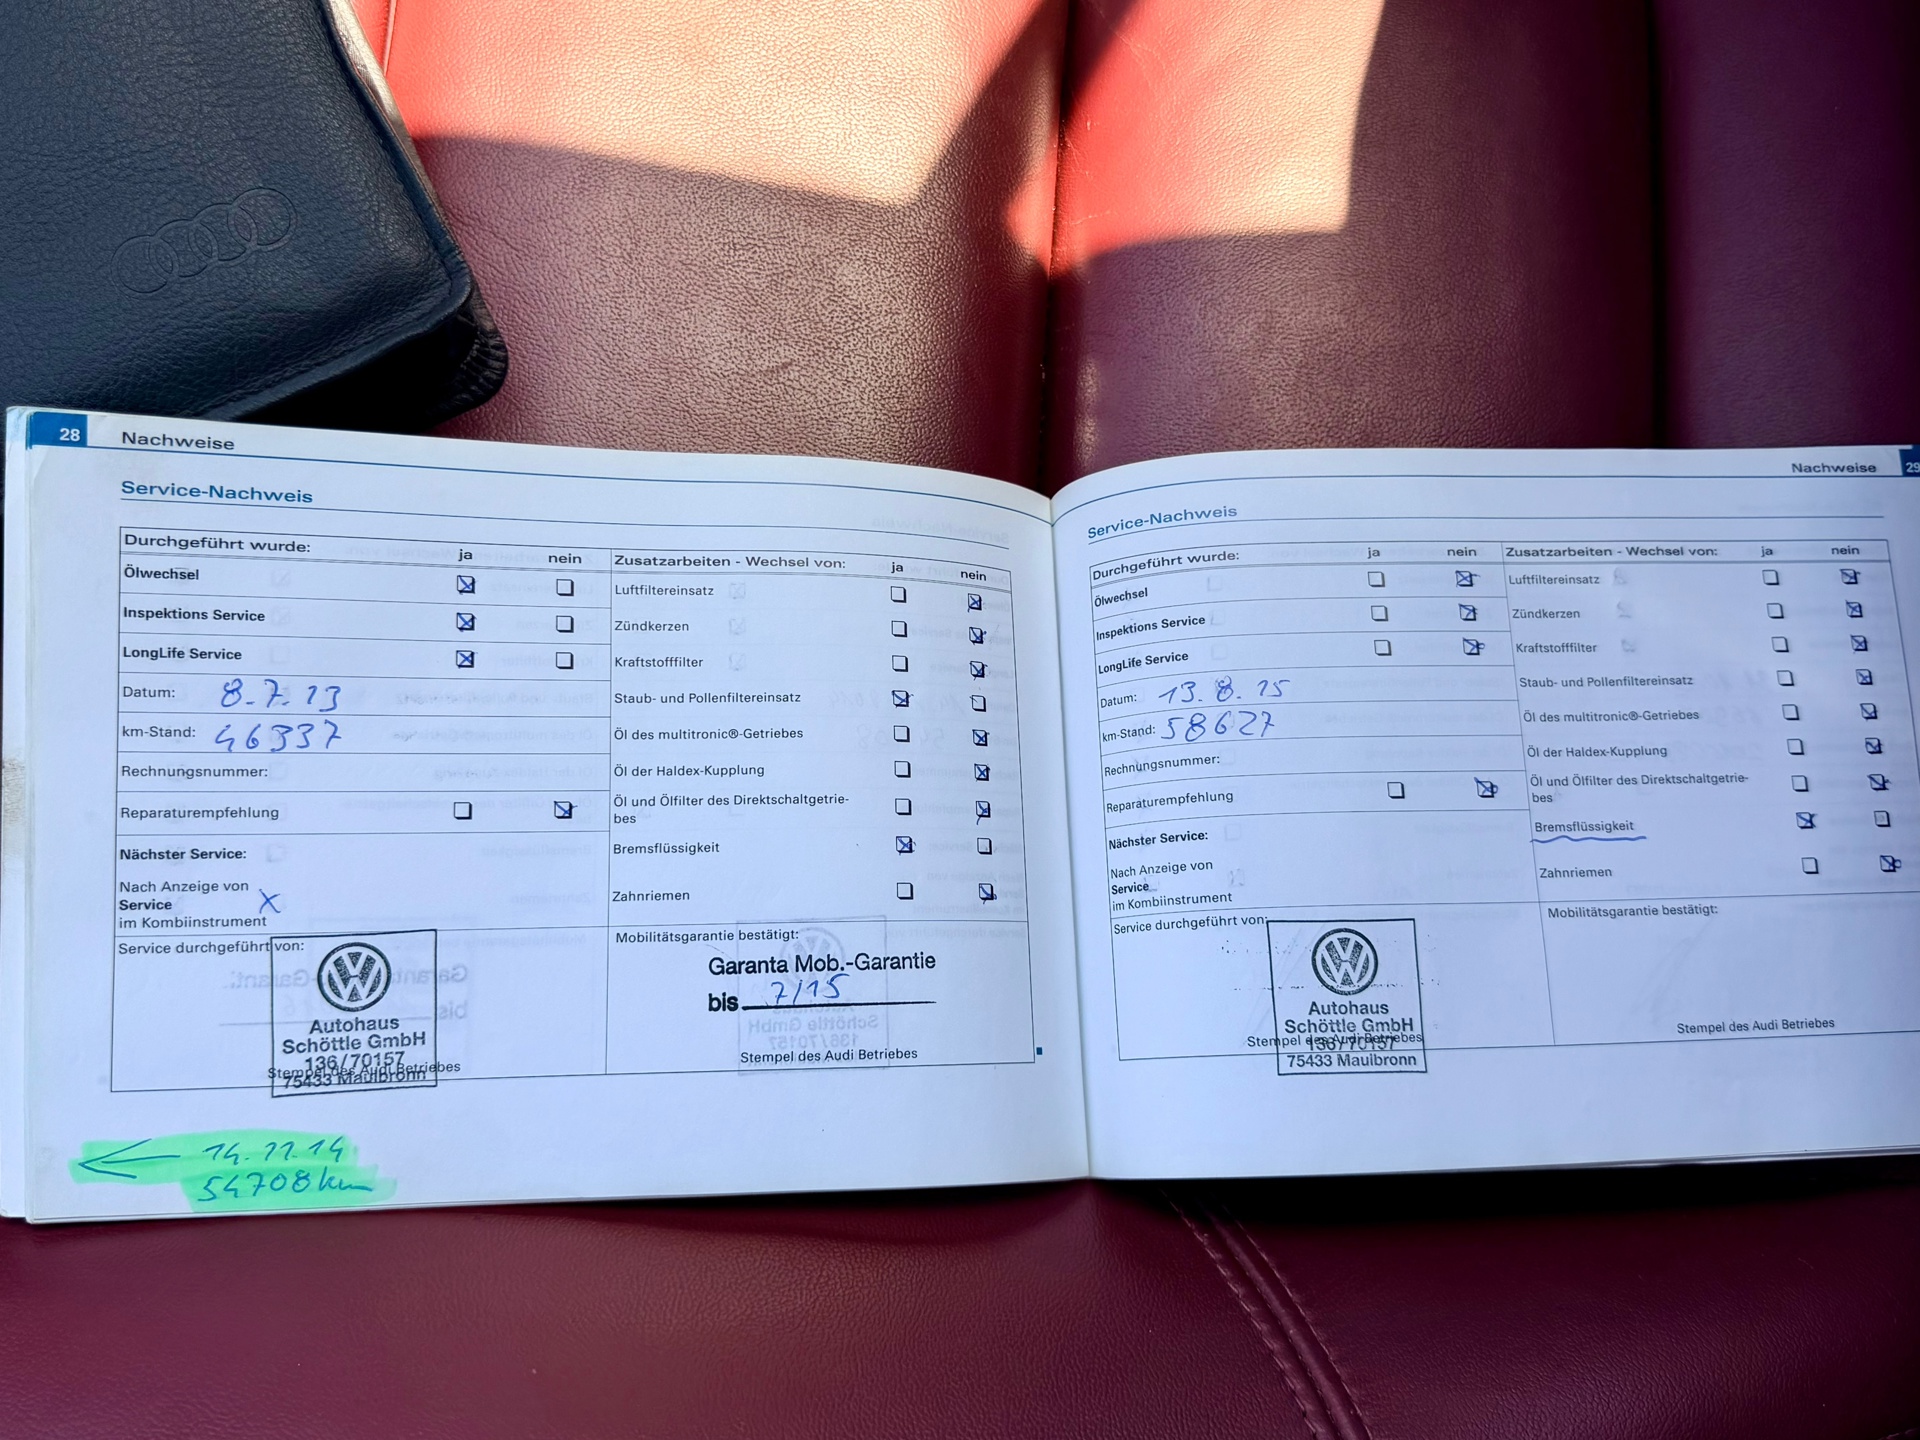 28 Nachweise
Service-Nachweis
Durchgeführt wurde: ja nein
Ölwechsel
Inspektions Service
LongLife Service
Datum: 8.7.13
km-Stand: 46337
Rechnungsnummer:
Reparaturempfehlung
Nächster Service:
Nach Anzeige von
Service
im Kombiinstrument X
Service durchgeführt von:
Autohaus
Schöttle GmbH
136/70157
75433 Maulbronn
Stempel des Audi Betriebes
Zusatzarbeiten - Wechsel von: ja nein
Luftfiltereinsatz
Zündkerzen
Kraftstofffilter
Staub- und Pollenfiltereinsatz
Öl des multitronic®-Getriebes
Öl der Haldex-Kupplung
Öl und Ölfilter des Direktschaltgetrie-
bes
Bremsflüssigkeit
Zahnriemen
Mobilitätsgarantie bestätigt:
Garanta Mob.-Garantie
bis 7/15
Stempel des Audi Betriebes
14.11.14
54708 km
Nachweise 29
Service-Nachweis
Durchgeführt wurde: ja nein
Ölwechsel
Inspektions Service
LongLife Service
Datum: 13.8.15
km-Stand: 58627
Rechnungsnummer:
Reparaturempfehlung
Nächster Service:
Nach Anzeige von
Service
im Kombiinstrument
Service durchgeführt von:
Autohaus
Schöttle GmbH
136/70157
75433 Maulbronn
Stempel des Audi Betriebes
Zusatzarbeiten - Wechsel von: ja nein
Luftfiltereinsatz
Zündkerzen
Kraftstofffilter
Staub- und Pollenfiltereinsatz
Öl des multitronic®-Getriebes
Öl der Haldex-Kupplung
Öl und Ölfilter des Direktschaltgetrie-
bes
Bremsflüssigkeit
Zahnriemen
Mobilitätsgarantie bestätigt:
Stempel des Audi Betriebes